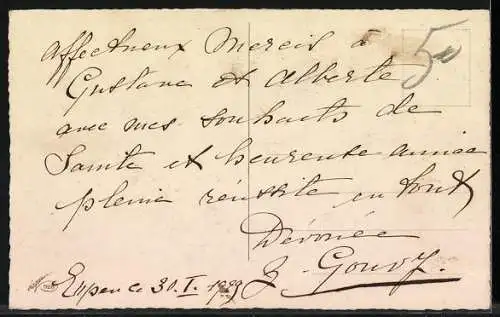 Affectueux Mercis à
Gustave et Alberte
avec mes souhaits de
Santé et heureuse année
pleine réussite en tout
Dévouée
J. Gouvy.
Eupen le 30.I. 1939
50